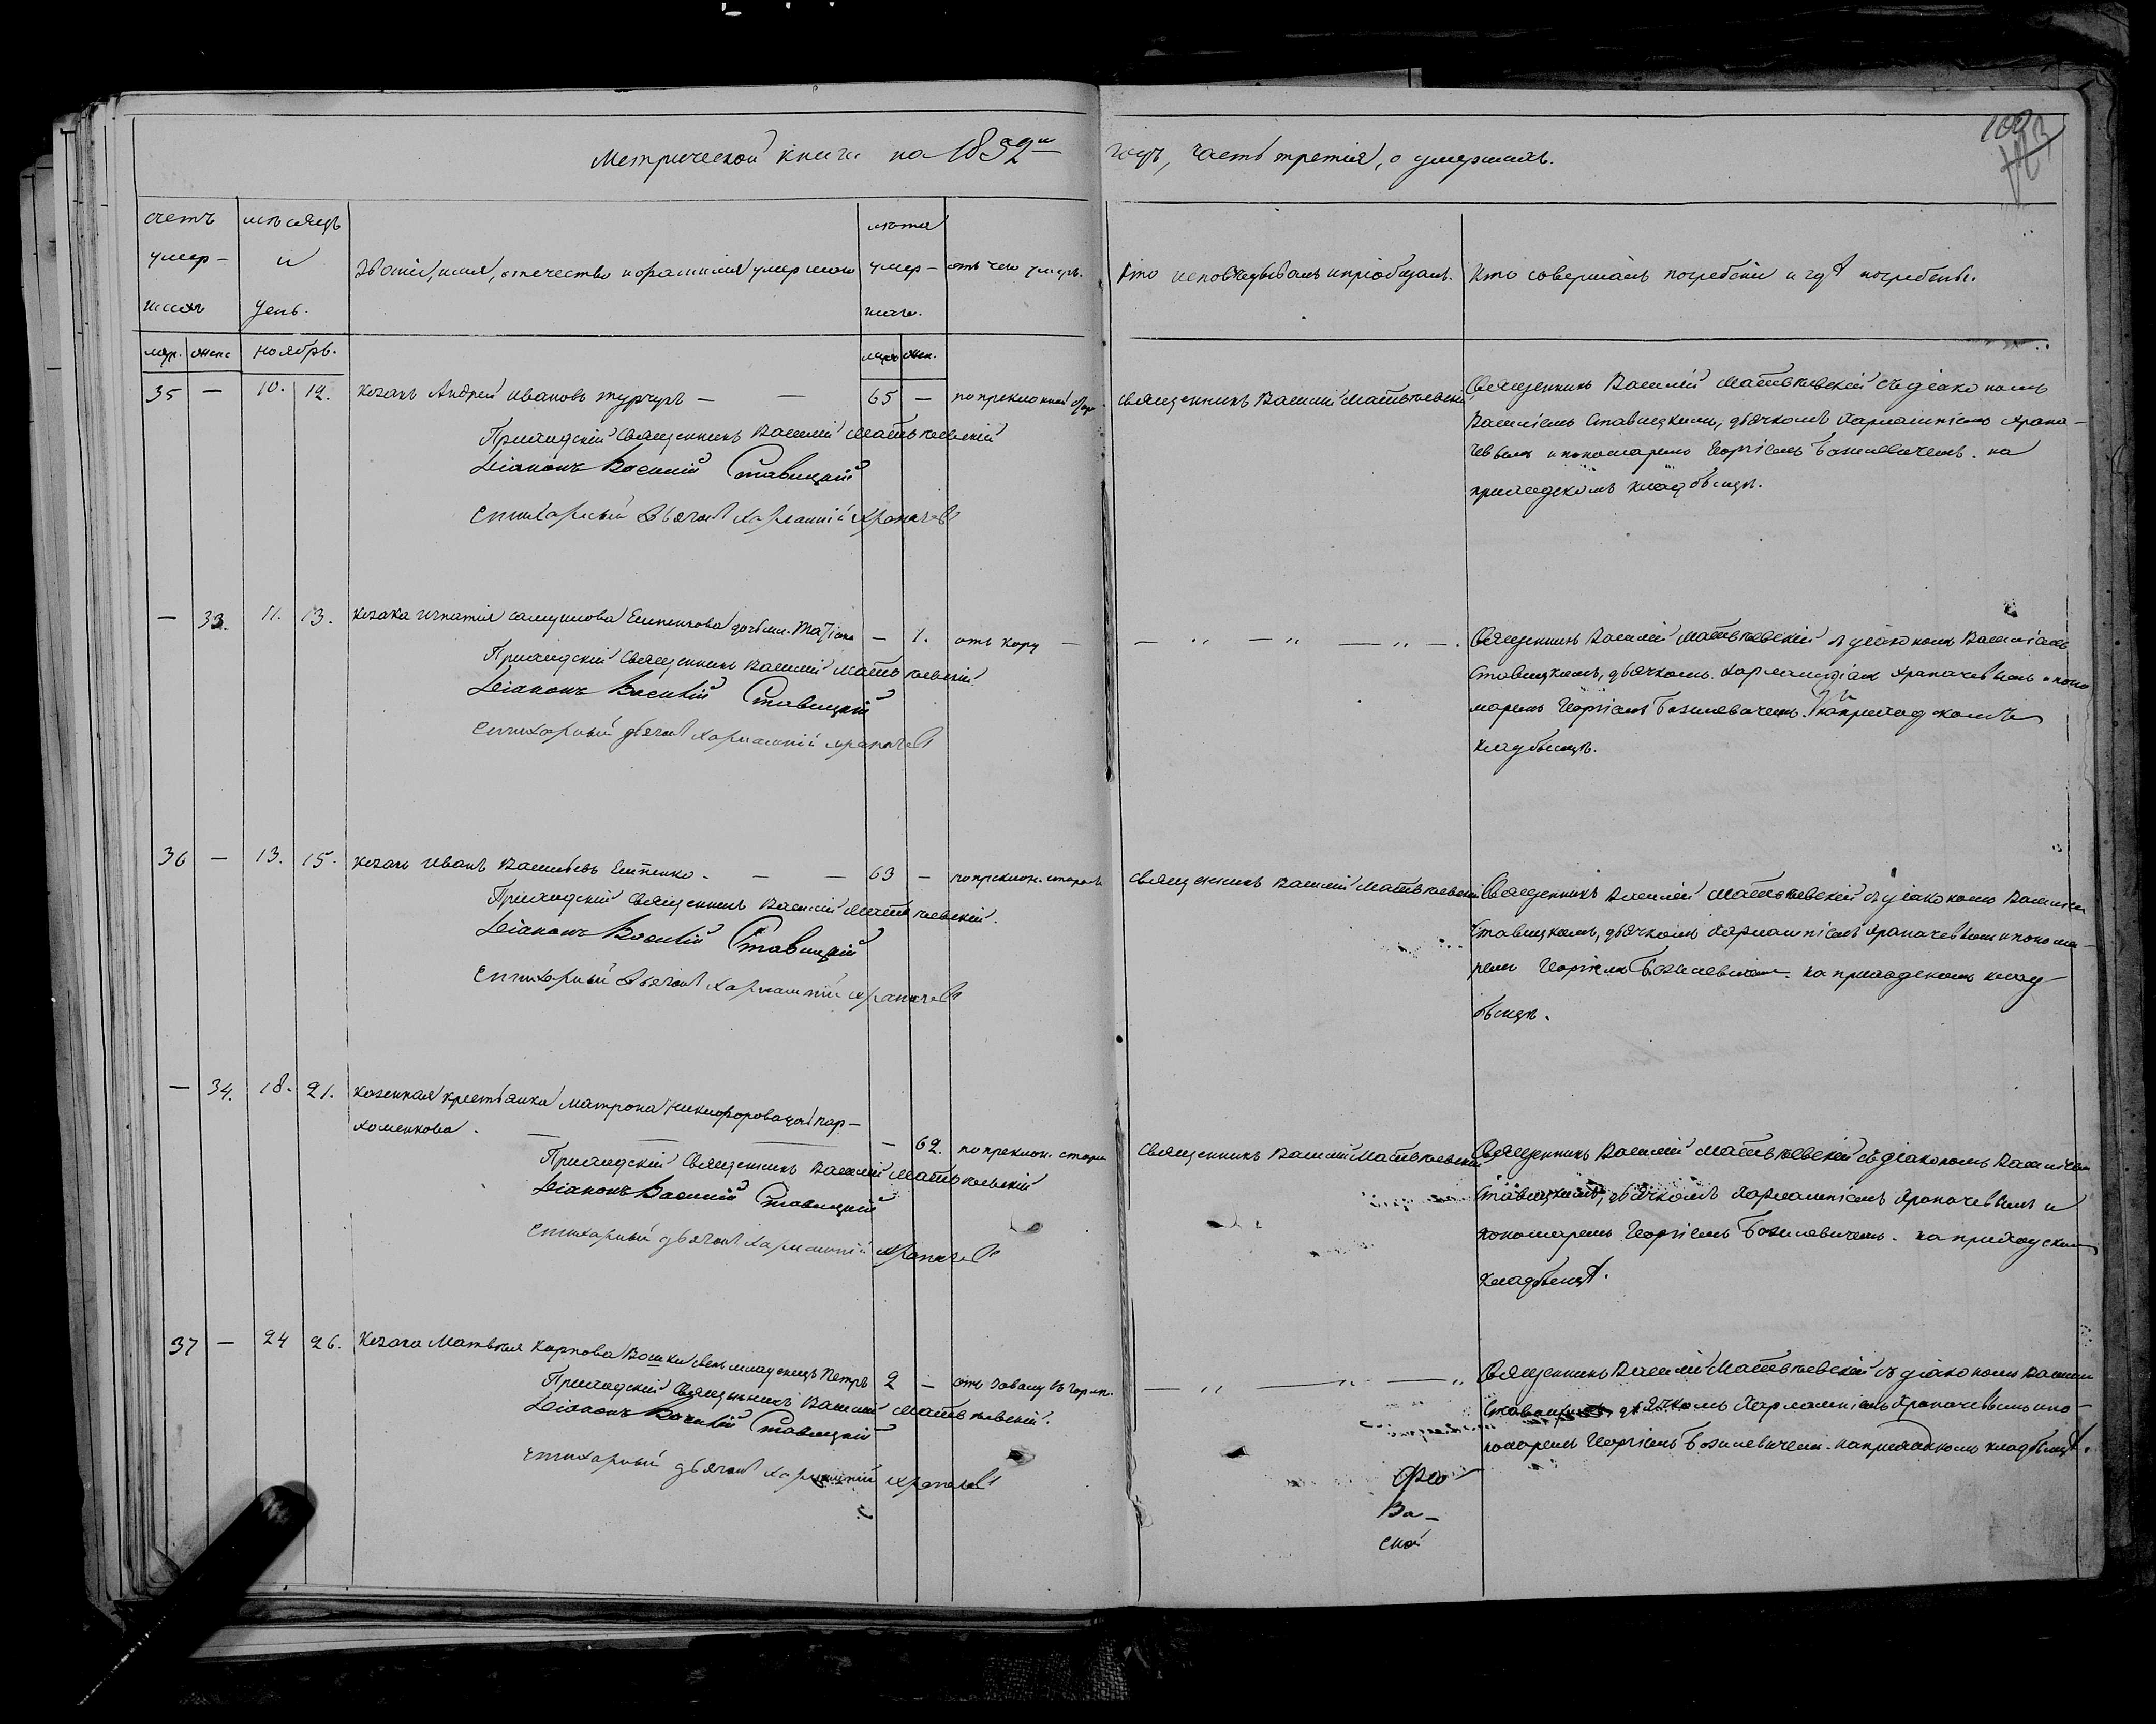 Метрической книги на 1852й годъ, часть третія, о умершихъ.
счетъ умер-шихъ
мѣсяцъ и день.
Званіе, имя, отчество и фамилія умершаго
лѣта умер-шаго.
отъ чего умеръ.
Кто исповѣдывалъ и пріобщалъ.
Кто совершалъ погребеніе и гдѣ погребены.
муж. женс ноябрь. муж жен.
35 — 10. 12. козакъ Андрей Ивановъ — — 65 — по преклонной
священникъ Василій Матвѣевскій
Священникъ Василій Матвѣевскій съ діакономъ
Василіемъ Ставицкимъ, дьячкомъ Харлампіемъ Храпа-
чевымъ и пономаремъ Георгіемъ Базилевичемъ. на
приходскомъ кладбищѣ.
Приходскій Священникъ Василій Матвѣевскій
Діаконъ Василій Ставицкій
Стихарный дьячокъ Харлампій Храпачев
— 33. 11. 13. козака Игнатія Самуилова дочь мл. — 1. отъ кору —
— „ — „ — „ —.
Священникъ Василій Матвѣевскій съ діакономъ Василіемъ
Ставицкимъ, дьячкомъ Харлампіемъ Храпачевымъ и поно
маремъ Георгіемъ Базилевичемъ. на приходскомъ
кладбищѣ.
Приходскій Священникъ Василій Матвѣевскій
Діаконъ Василій Ставицкій
Стихарный дьячокъ Харлампій Храпачев
36 — 13. 15. козакъ Иванъ Васильевъ — — 63 — по преклон. старов
священникъ Василій Матвѣевскій
Священникъ Василій Матвѣевскій съ діакономъ Василіем
Ставицкимъ, дьячкомъ Харлампіемъ Храпачевымъ и понома-
ремъ Георгіемъ Базилевичемъ. на приходскомъ клад-
бищѣ.
Приходскій Священникъ Василій Матвѣевскій.
Діаконъ Василій Ставицкій
Стихарный дьячокъ Харлампій Храпачев
— 34. 18. 21. казенная крестьянка Матрона Никифорова дочь Пар-
хоменкова. — — — — 62. по преклон. стари
Священникъ Василій Матвѣевскій
Священникъ Василій Матвѣевскій съ діакономъ Василіем
Ставицкимъ, дьячкомъ Харлампіемъ Храпачевымъ и
пономаремъ Георгіемъ Базилевичемъ. на приходском
кладбищѣ.
Приходскій Священникъ Василій Матвѣевскій
Діаконъ Василій Ставицкій
Стихарный дьячокъ Харлампій Храпачев
37 — 24 26. Козака Матвѣя Карпова младенецъ Петръ 2 — отъ
— „ — „ — „
Священникъ Василій Матвѣевскій съ діакономъ Василіем
Ставицкимъ, дьячкомъ Харлампіемъ Храпачевымъ и по-
номаремъ Георгіемъ Базилевичемъ. на приходскомъ кладбищѣ.
Приходскій Священникъ Василій Матвѣевскій.
Діаконъ Василій Ставицкій
Стихарный дьячокъ Харлампій Храпачев
Ва-
ской